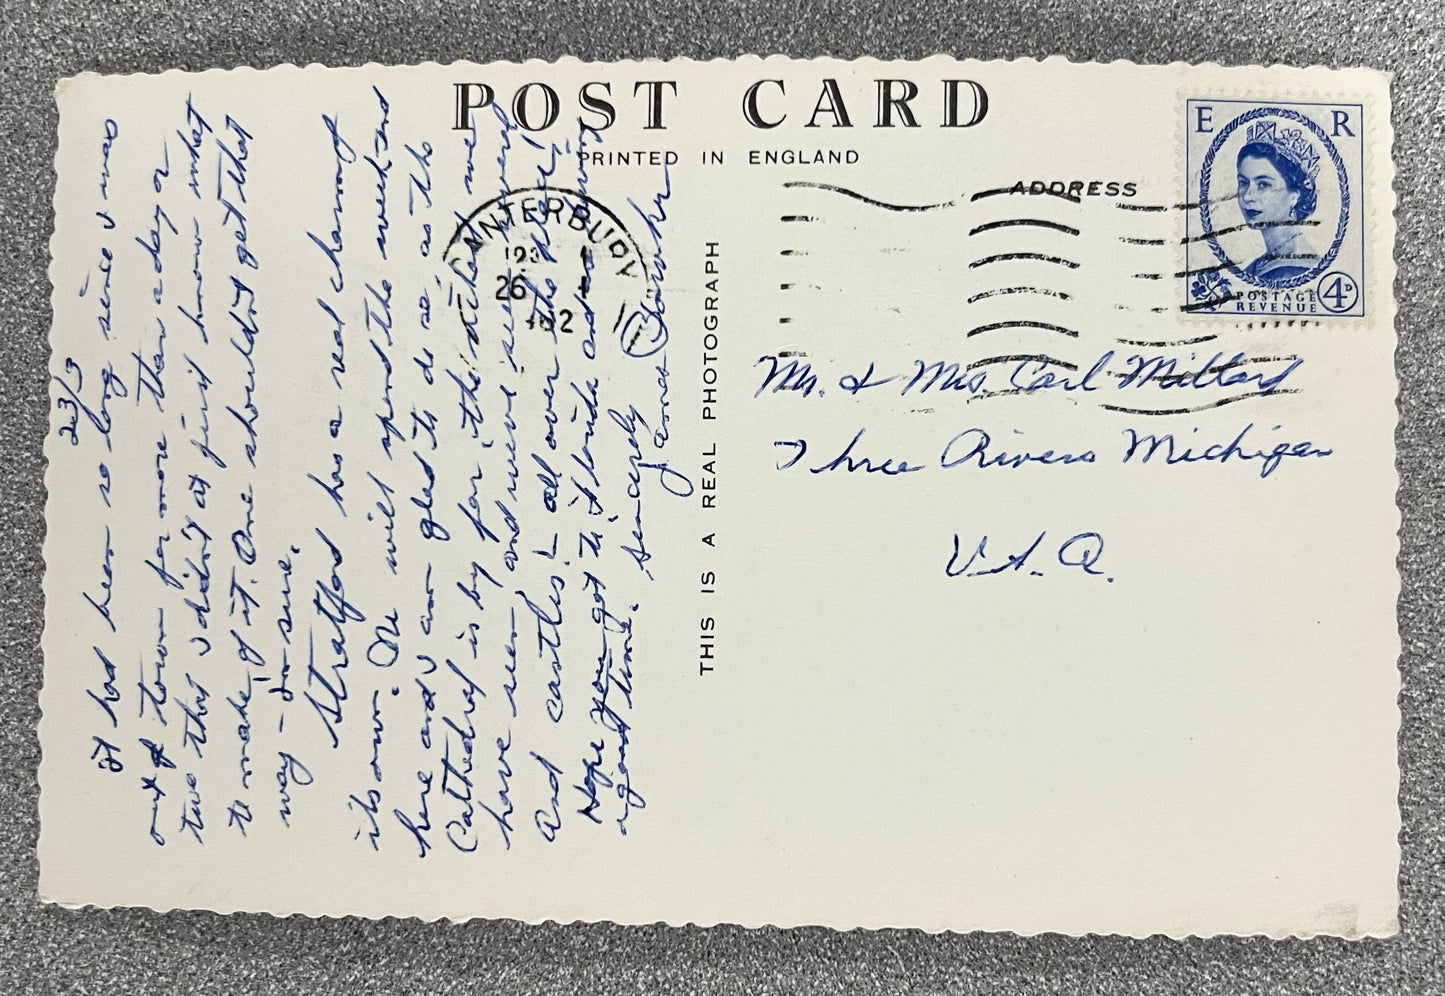 POST CARD
PRINTED IN ENGLAND
ADDRESS
E R
POSTAGE
REVENUE
4D
CANTERBURY
26
THIS IS A REAL PHOTOGRAPH
23/3
It had been so long since I was
out of town for more than a day or
two that I didn't at first know what
to make of it. One shouldn't get that
way - I'm sure.
Stratford has a real charm of
its own. We will spend the week end
here and I am glad to do so, as the
Cathedral is by far, the nicest we
have seen and we've seen
And castles! - all over the place!
Hope you got to Florida and
a good time. Sincerely
James
Mr. & Mrs. Carl Millard
Three Rivers Michigan
U.S.A.